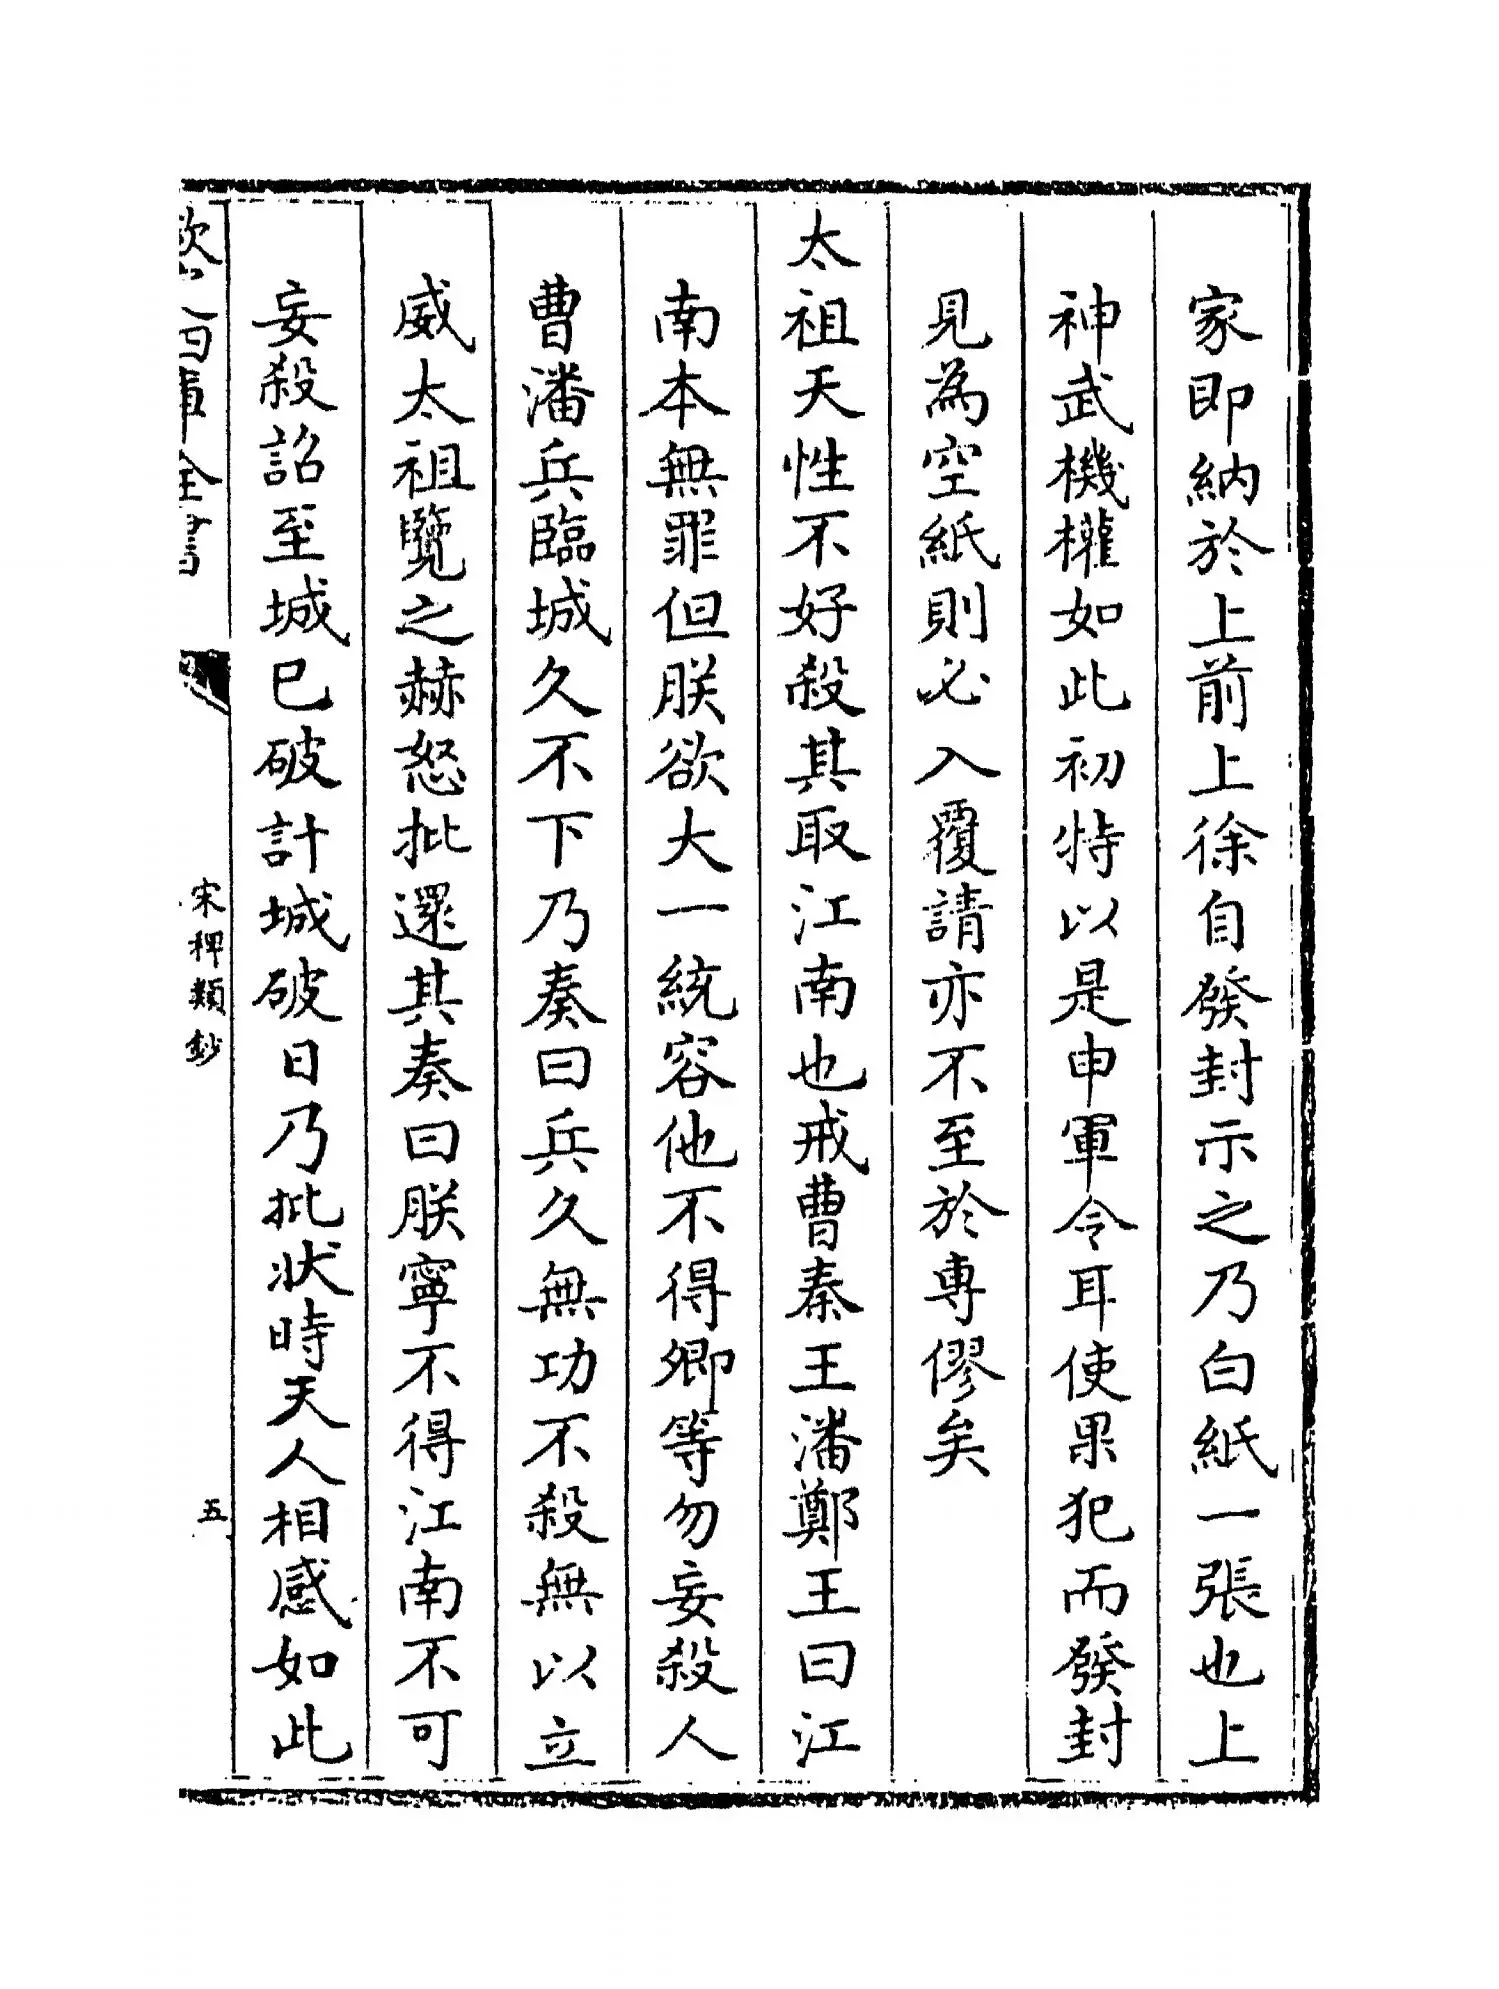 家即納於上前上徐自發封示之乃白紙一張也上
神武機權如此初特以是申軍令耳使果犯而發封
見為空紙則必入覆請亦不至於專僇矣
太祖天性不好殺其取江南也戒曹秦王潘鄭王曰江
南本無罪但朕欲大一統容他不得卿等勿妄殺人
曹潘兵臨城久不下乃奏曰兵久無功不殺無以立
威太祖覽之赫怒批還其奏曰朕寧不得江南不可
妄殺詔至城已破計城破日乃批狀時天人相感如此
欽定四庫全書
宋稗類鈔
五